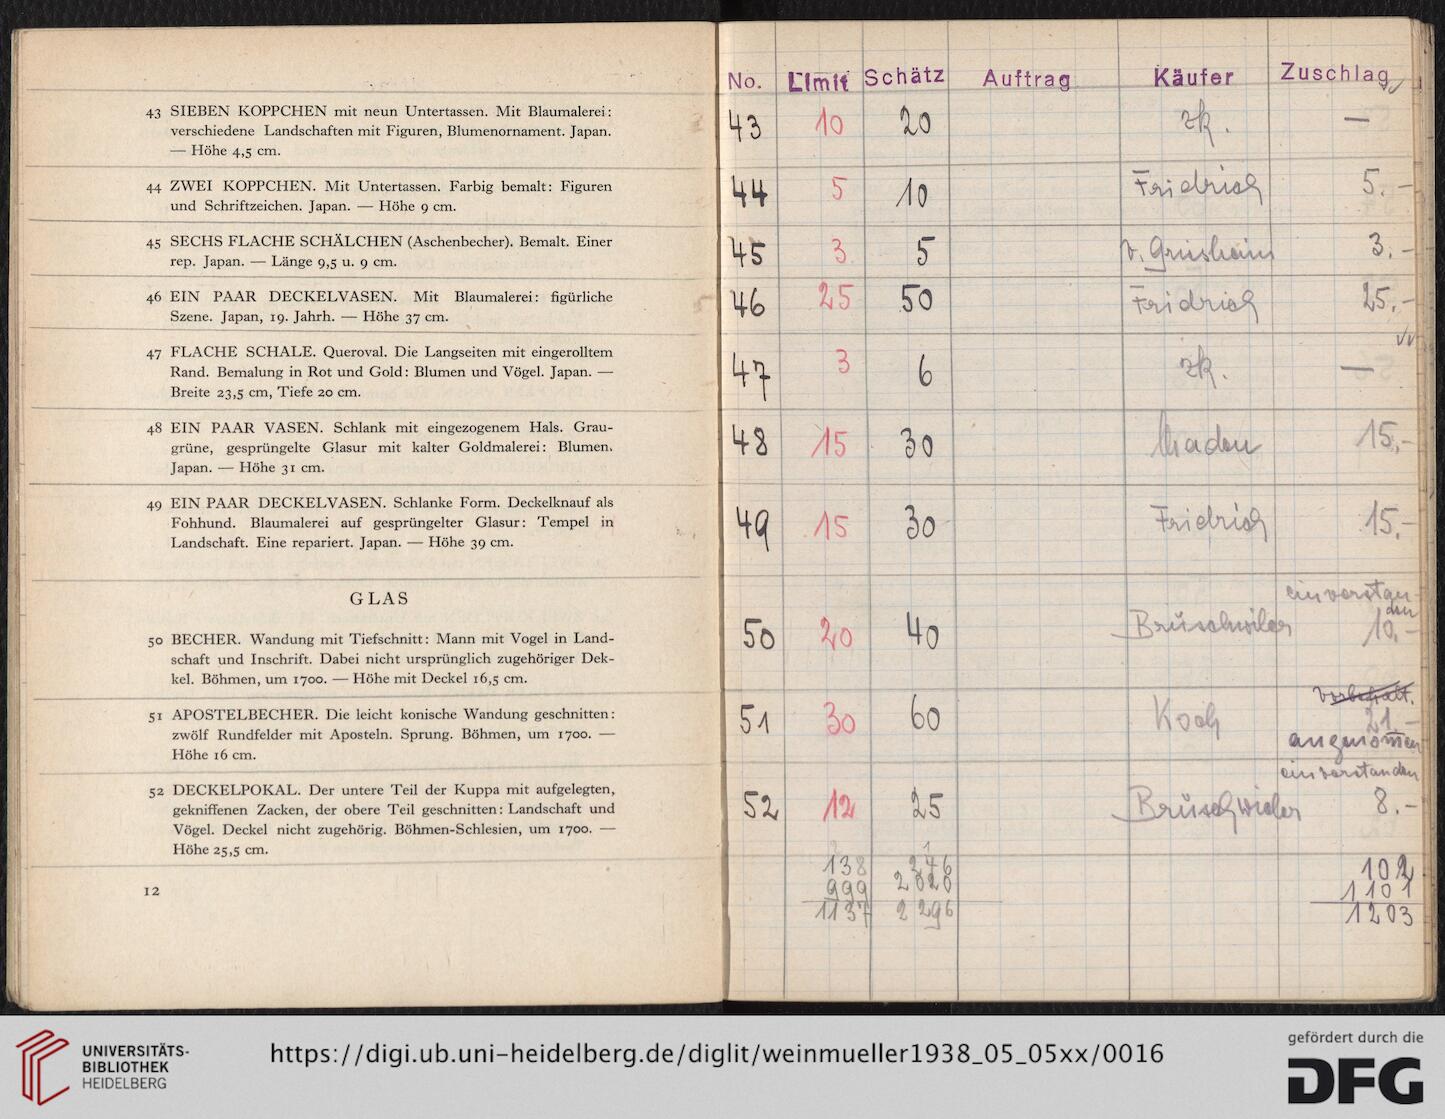 43 SIEBEN KOPPCHEN mit neun Untertassen. Mit Blaumalerei:
verschiedene Landschaften mit Figuren, Blumenornament. Japan.
— Höhe 4,5 cm.
44 ZWEI KOPPCHEN. Mit Untertassen. Farbig bemalt: Figuren
und Schriftzeichen. Japan. — Höhe 9 cm.
45 SECHS FLACHE SCHÄLCHEN (Aschenbecher). Bemalt. Einer
rep. Japan. — Länge 9,5 u. 9 cm.
46 EIN PAAR DECKELVASEN. Mit Blaumalerei: figürliche
Szene. Japan, 19. Jahrh. — Höhe 37 cm.
47 FLACHE SCHALE. Queroval. Die Langseiten mit eingerolltem
Rand. Bemalung in Rot und Gold: Blumen und Vögel. Japan. —
Breite 23,5 cm, Tiefe 20 cm.
48 EIN PAAR VASEN. Schlank mit eingezogenem Hals. Grau-
grüne, gesprüngelte Glasur mit kalter Goldmalerei: Blumen.
Japan. — Höhe 31 cm.
49 EIN PAAR DECKELVASEN. Schlanke Form. Deckelknauf als
Fohhund. Blaumalerei auf gesprüngelter Glasur: Tempel in
Landschaft. Eine repariert. Japan. — Höhe 39 cm.
GLAS
50 BECHER. Wandung mit Tiefschnitt: Mann mit Vogel in Land-
schaft und Inschrift. Dabei nicht ursprünglich zugehöriger Dek-
kel. Böhmen, um 1700. — Höhe mit Deckel 16,5 cm.
51 APOSTELBECHER. Die leicht konische Wandung geschnitten:
zwölf Rundfelder mit Aposteln. Sprung. Böhmen, um 1700. —
Höhe 16 cm.
52 DECKELPOKAL. Der untere Teil der Kuppa mit aufgelegten,
gekniffenen Zacken, der obere Teil geschnitten: Landschaft und
Vögel. Deckel nicht zugehörig. Böhmen-Schlesien, um 1700. —
Höhe 25,5 cm.
12
No. Limit Schätz Auftrag Käufer Zuschlag
43 10 20 zk. —
44 5 10 Fridrich 5.-
45 3 5 3.-
46 25 50 Fridrich 25.-
47 3 6 zk. —
48 15 30 15.-
49 15 30 Fridrich 15.-
einverstan
den
50 20 40 Brüschwiler 10.-
vorbehalt.
51 30 60 Koch 21.-
angenommen
einverstanden
52 12 25 Brüschwiler 8.-
138 102
999 2020 1101
1137 2296 1203
UNIVERSITÄTS-
BIBLIOTHEK
HEIDELBERG
https://digi.ub.uni-heidelberg.de/diglit/weinmueller1938_05_05xx/0016
gefördert durch die
DFG